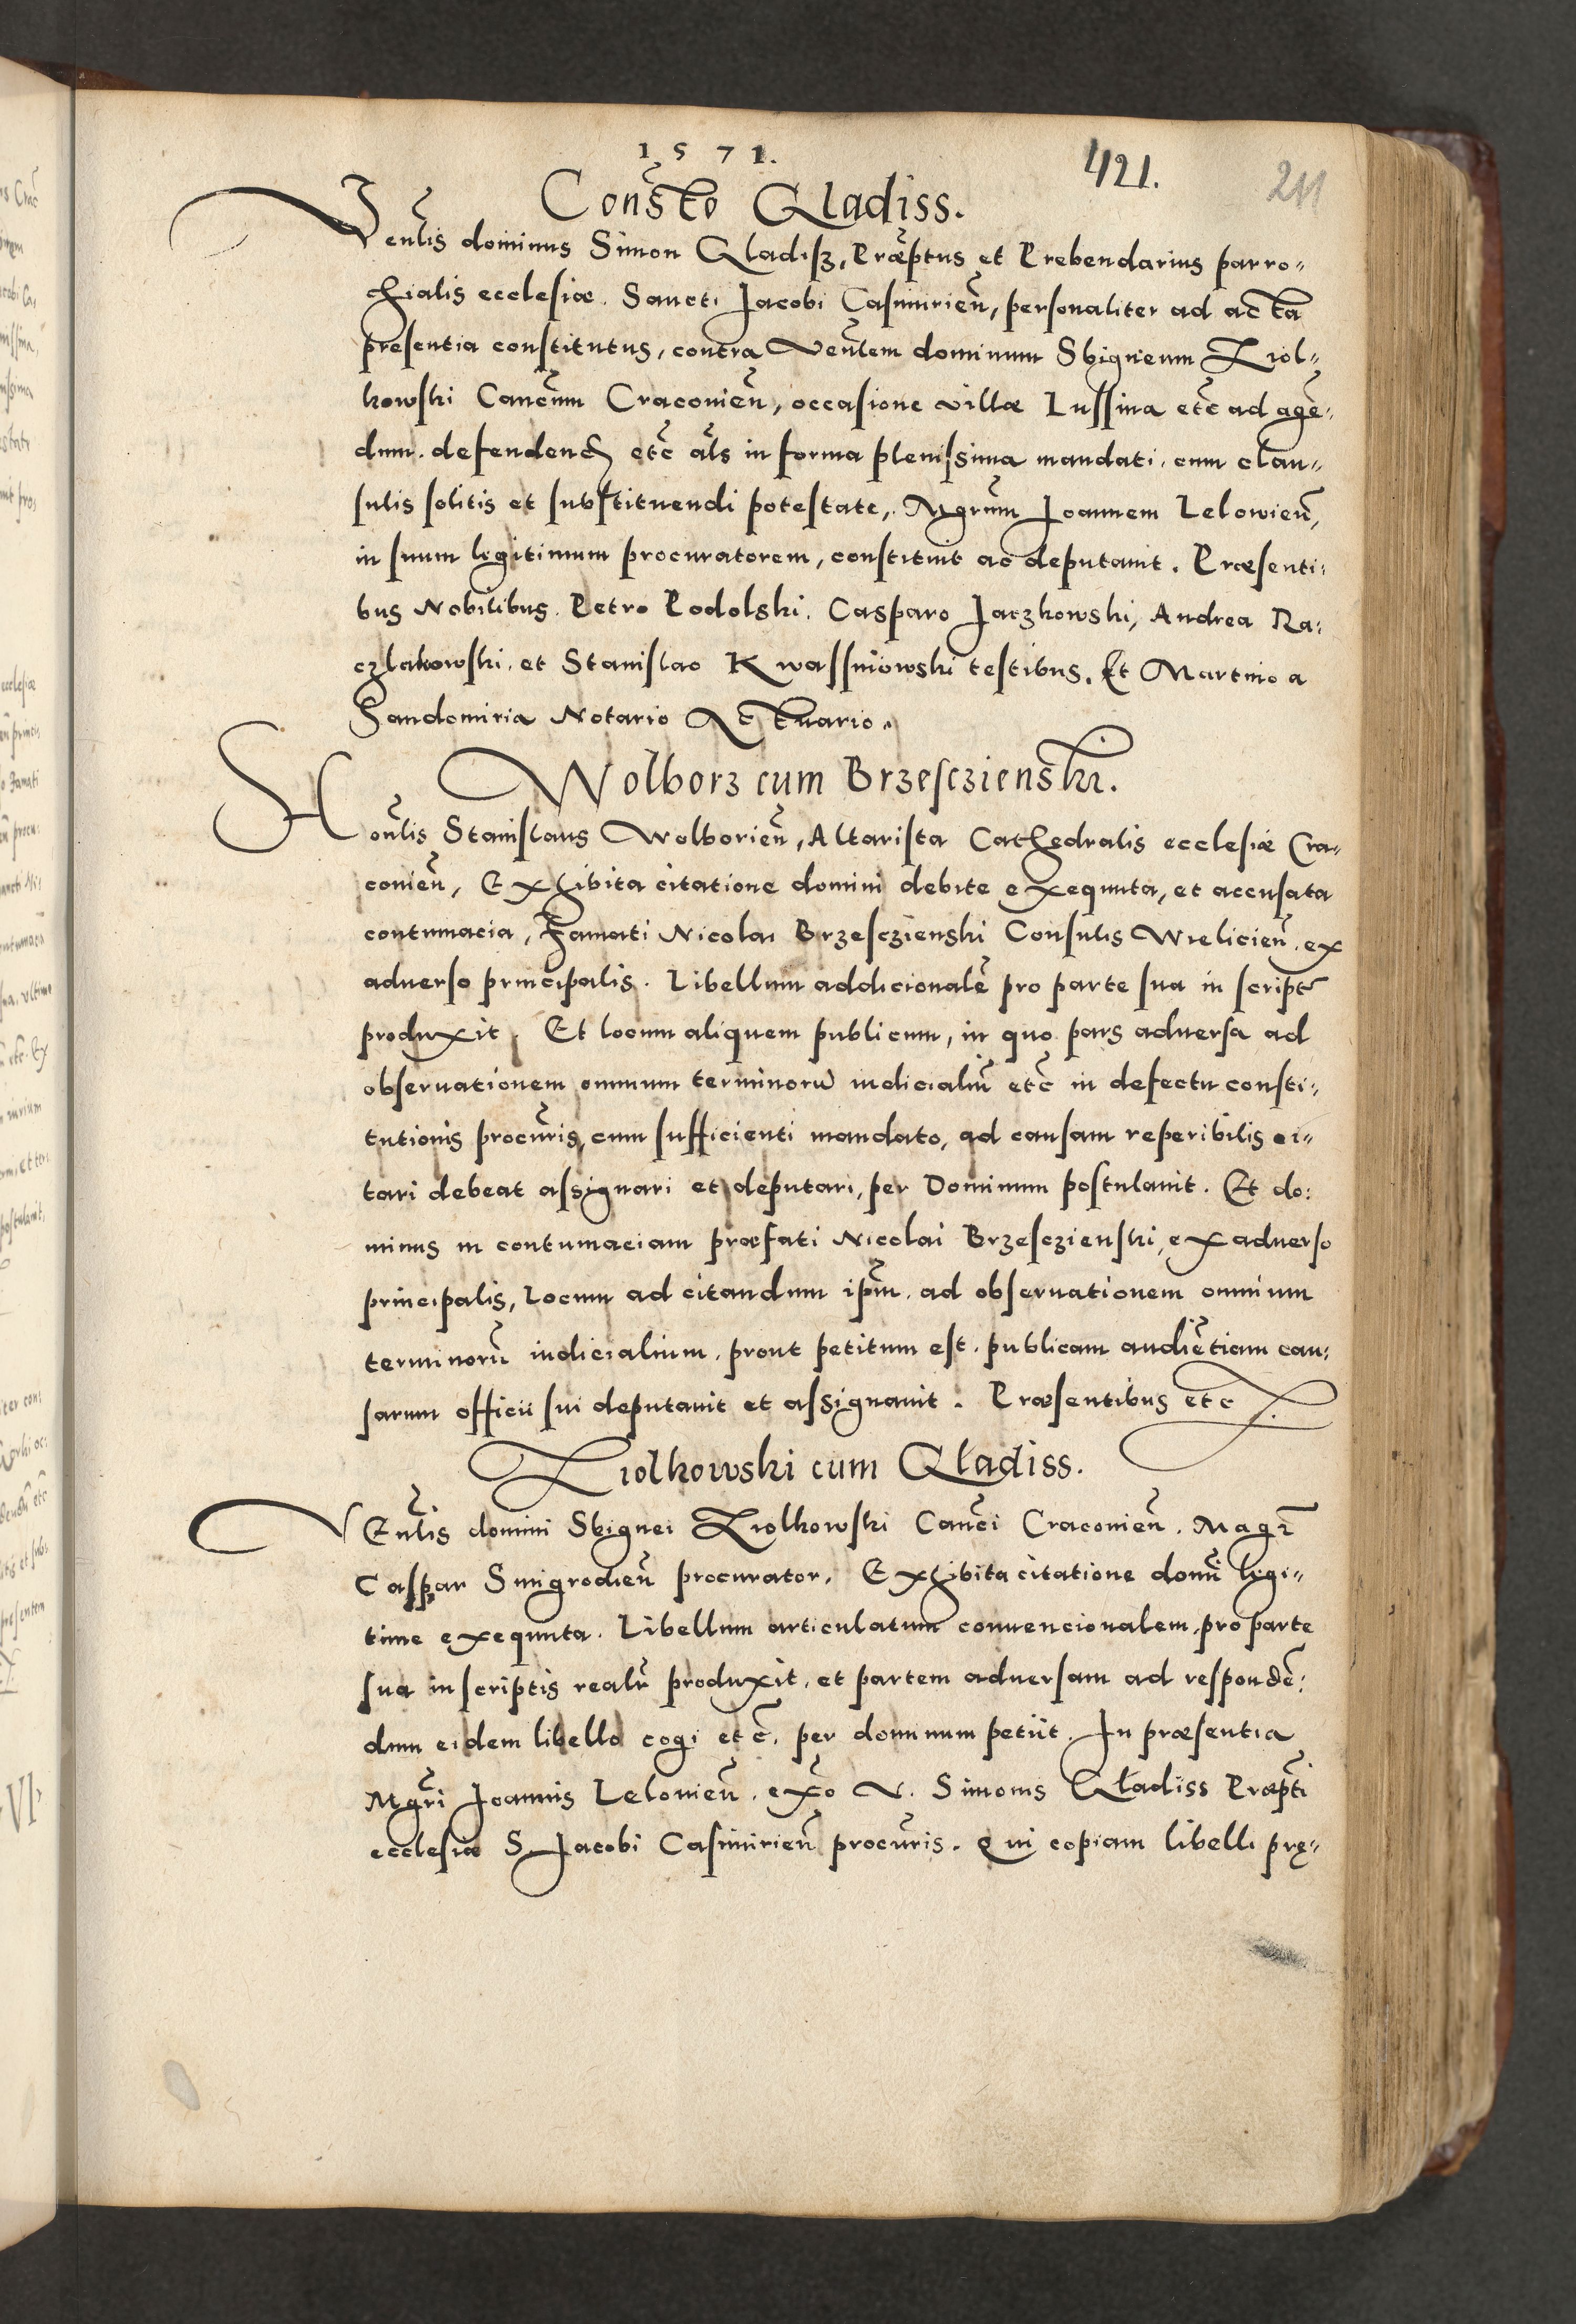 1571.
421.
211
Consto Gladiss.
Venlis dominus Simon Gladisz, Præptus et Prebendarius parro-
chialis ecclesiæ Sancti Jacobi Casimirien, personaliter ad acta
presentia constitutus, contra Venlem dominum Sbigneum Ziol-
kowski Cancum Craconien, occasione villæ Lussina etc ad agē-
dum. defendend etc als in forma plenissima mandati, cum clau-
sulis solitis et substituendi potestate, Mgrum Joannem Lelowien,
in suum legitimum procuratorem, constituit ac deputauit. Præsenti-
bus Nobilibus. Petro Podolski. Casparo Jaczkowski, Andrea Ra-
czlakowski, et Stanislao Kwassniowski testibus. Et Martino a
Sandomiria Notario Actuario.
Wolborz cum Brzesczienski.
Honlis Stanislaus Wolborien, Altarista Cathedralis ecclesiæ Cra-
conien, Exhibita citatione domini debite exequuta, et accusata
contumacia, Famati Nicolai Brzesczienski Consulis Wielicien. ex
aduerso principalis. Libellum addicionalē pro parte sua in script
produxit. Et locum aliquem publicum, in quo pars aduersa ad
obseruationem omnium terminorū iudicialiū etc in defectu consti-
tutionis procuris, cum sufficienti mandato, ad causam reperibilis ci-
tari debeat assignari et deputari, per Dominum postulauit. Et do-
minus in contumaciam præfati Nicolai Brzesczienski, ex aduerso
principalis, Locum ad citandum ipm. ad obseruationem omnium
terminorū iudicialium, prout petitum est. publicam audiētiam cau-
sarum officii sui deputauit et assignauit. Præsentibus etc
Ziolkowski cum Gładiss.
VEnlis domini Sbignei Ziolkowski Canci Craconien. Magr
Caspar Smigrodien procurator. Exhibita citatione domi legi-
time exequuta. Libellum articulatum conuencionalem, pro parte
sua in scriptis realr produxit, et partem aduersam ad respondē-
dum eidem libello cogi etc. per dominum petiit. In præsentia
Mgri Joannis Lelouien. exo V. Simonis Gładiss Præpti
ecclesiæ S. Jacobi Casimirien procuris. Qui copiam libelli prę-